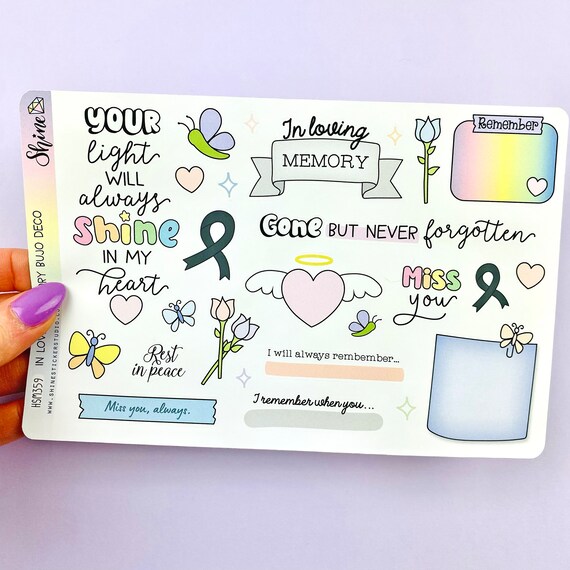 Shine
HSM359 IN LO
RY BUJO DECO
WWW.SHINESTICKERSTUDIO.
YOUR
light
WILL
always
Shine
IN MY
heart
In loving
MEMORY
Remember
GONE BUT NEVER forgotten
MISS
you
Rest
in peace
I will always remember...
Miss you, always.
I remember when you...